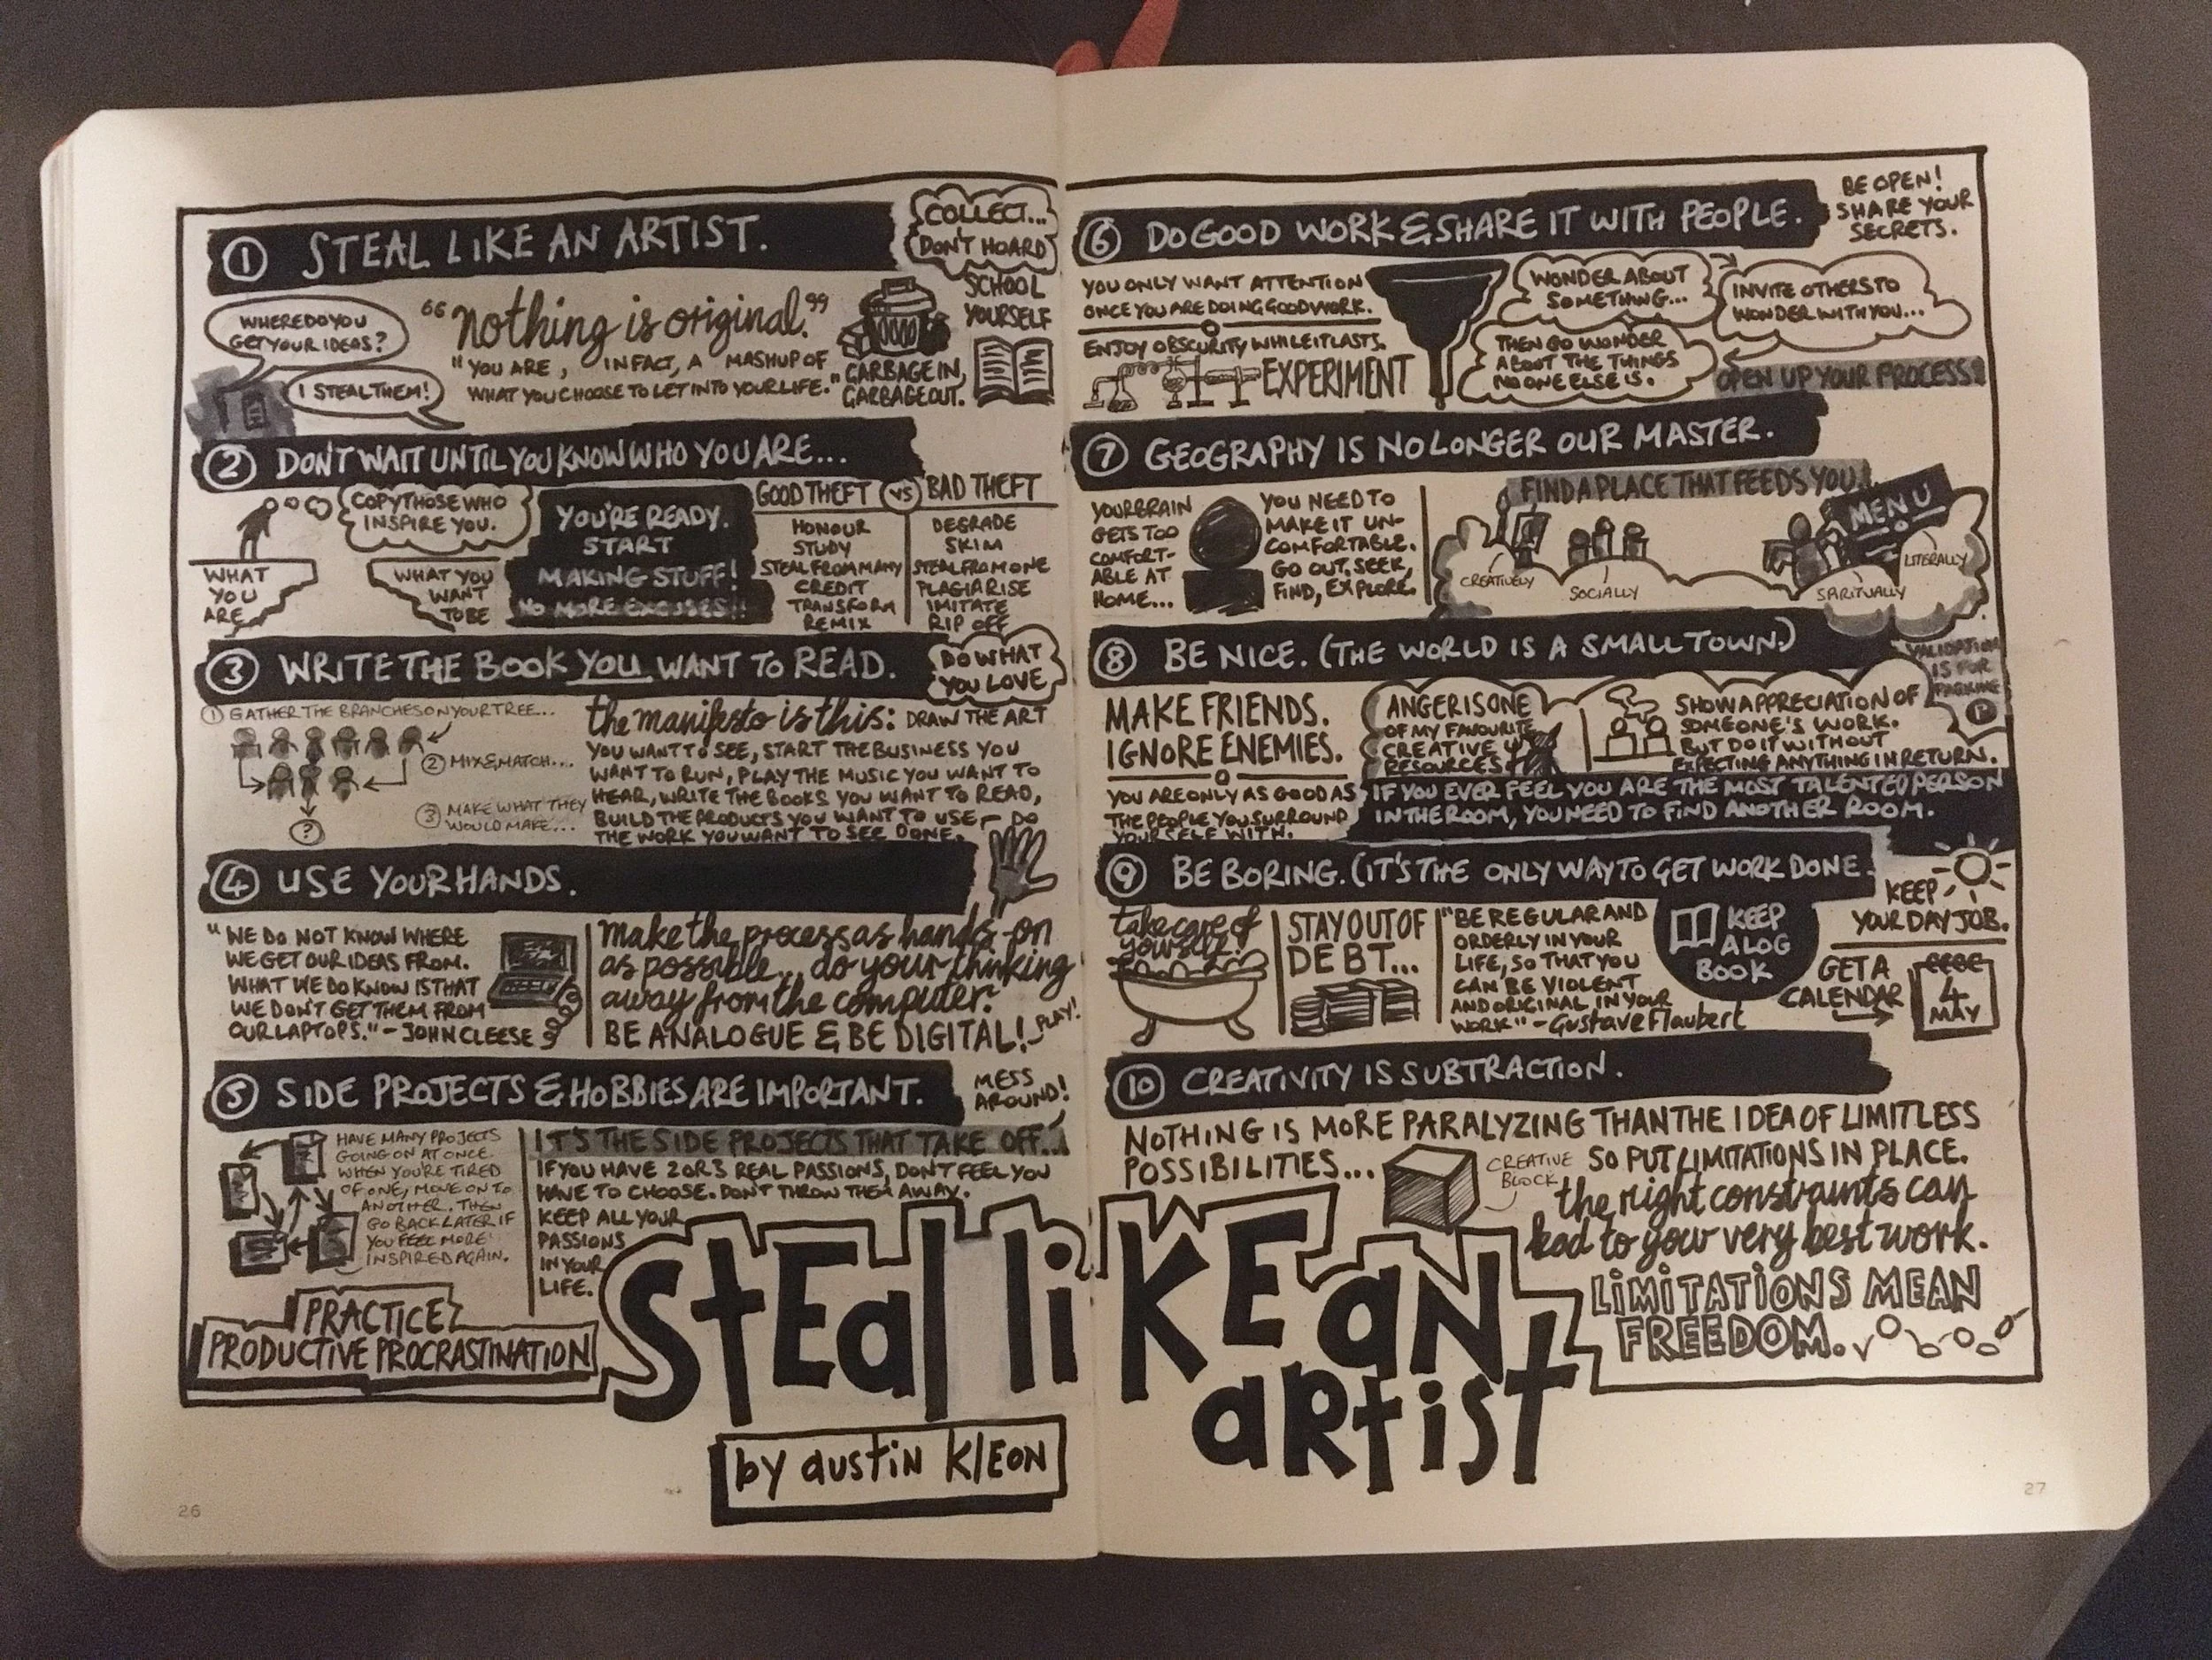 ① STEAL LIKE AN ARTIST.
COLLECT...
DON'T HOARD
WHERE DO YOU
GET YOUR IDEAS?
I STEAL THEM!
"nothing is original."
"YOU ARE, IN FACT, A MASHUP OF
WHAT YOU CHOOSE TO LET INTO YOUR LIFE."
GARBAGE IN,
GARBAGE OUT.
SCHOOL
YOURSELF
② DON'T WAIT UNTIL YOU KNOW WHO YOU ARE...
COPY THOSE WHO
INSPIRE YOU.
WHAT
YOU
ARE
WHAT YOU
WANT
TO BE
YOU'RE READY.
START
MAKING STUFF!
NO MORE EXCUSES!!
GOOD THEFT VS BAD THEFT
HONOUR DEGRADE
STUDY SKIM
STEAL FROM MANY STEAL FROM ONE
CREDIT PLAGIARISE
TRANSFORM IMITATE
REMIX RIP OFF
③ WRITE THE BOOK YOU WANT TO READ.
DO WHAT
YOU LOVE
① GATHER THE BRANCHES ON YOUR TREE...
② MIX & MATCH...
③ MAKE WHAT THEY
WOULD MAKE...
?
the manifesto is this: DRAW THE ART
YOU WANT TO SEE, START THE BUSINESS YOU
WANT TO RUN, PLAY THE MUSIC YOU WANT TO
HEAR, WRITE THE BOOKS YOU WANT TO READ,
BUILD THE PRODUCTS YOU WANT TO USE - DO
THE WORK YOU WANT TO SEE DONE.
④ USE YOUR HANDS.
"WE DO NOT KNOW WHERE
WE GET OUR IDEAS FROM.
WHAT WE DO KNOW IS THAT
WE DON'T GET THEM FROM
OUR LAPTOPS." - JOHN CLEESE
make the process as hands-on
as possible... do your thinking
away from the computer.
BE ANALOGUE & BE DIGITAL!
PLAY!
⑤ SIDE PROJECTS & HOBBIES ARE IMPORTANT.
MESS
AROUND!
HAVE MANY PROJECTS
GOING ON AT ONCE.
WHEN YOU'RE TIRED
OF ONE, MOVE ON TO
ANOTHER. THEN
GO BACK LATER IF
YOU FEEL MORE
INSPIRED AGAIN.
PRACTICE
PRODUCTIVE PROCRASTINATION
IT'S THE SIDE PROJECTS THAT TAKE OFF...
IF YOU HAVE 2 OR 3 REAL PASSIONS, DON'T FEEL YOU
HAVE TO CHOOSE. DON'T THROW THEM AWAY.
KEEP ALL YOUR
PASSIONS
IN YOUR
LIFE.
⑥ DO GOOD WORK & SHARE IT WITH PEOPLE.
BE OPEN!
SHARE YOUR
SECRETS.
YOU ONLY WANT ATTENTION
ONCE YOU ARE DOING GOOD WORK.
ENJOY OBSCURITY WHILE IT LASTS.
EXPERIMENT
WONDER ABOUT
SOMETHING...
INVITE OTHERS TO
WONDER WITH YOU...
THEN GO WONDER
ABOUT THE THINGS
NO ONE ELSE IS.
OPEN UP YOUR PROCESS!
⑦ GEOGRAPHY IS NO LONGER OUR MASTER.
YOUR BRAIN
GETS TOO
COMFORT-
ABLE AT
HOME...
YOU NEED TO
MAKE IT UN-
COMFORTABLE.
GO OUT, SEEK,
FIND, EXPLORE.
FIND A PLACE THAT FEEDS YOU
MENU
CREATIVELY
SOCIALLY
SPIRITUALLY
LITERALLY
⑧ BE NICE. (THE WORLD IS A SMALL TOWN.)
VALIDATION
IS FOR
PARKING
P
MAKE FRIENDS.
IGNORE ENEMIES.
YOU ARE ONLY AS GOOD AS
THE PEOPLE YOU SURROUND
YOURSELF WITH.
ANGER IS ONE
OF MY FAVOURITE
CREATIVE
RESOURCES
SHOW APPRECIATION OF
SOMEONE'S WORK.
BUT DO IT WITHOUT
EXPECTING ANYTHING IN RETURN.
IF YOU EVER FEEL YOU ARE THE MOST TALENTED PERSON
IN THE ROOM, YOU NEED TO FIND ANOTHER ROOM.
⑨ BE BORING. (IT'S THE ONLY WAY TO GET WORK DONE.
take care of
yourself.
STAY OUT OF
DEBT...
"BE REGULAR AND
ORDERLY IN YOUR
LIFE, SO THAT YOU
CAN BE VIOLENT
AND ORIGINAL IN YOUR
WORK" - Gustave Flaubert
KEEP
A LOG
BOOK
KEEP
YOUR DAY JOB.
GET A
CALENDAR
4
MAY
⑩ CREATIVITY IS SUBTRACTION.
NOTHING IS MORE PARALYZING THAN THE IDEA OF LIMITLESS
POSSIBILITIES...
CREATIVE
BLOCK
SO PUT LIMITATIONS IN PLACE.
the right constraints can
lead to your very best work.
LIMITATIONS MEAN
FREEDOM.
StEal liKE aN
aRtist
by austin KlEON
26
27